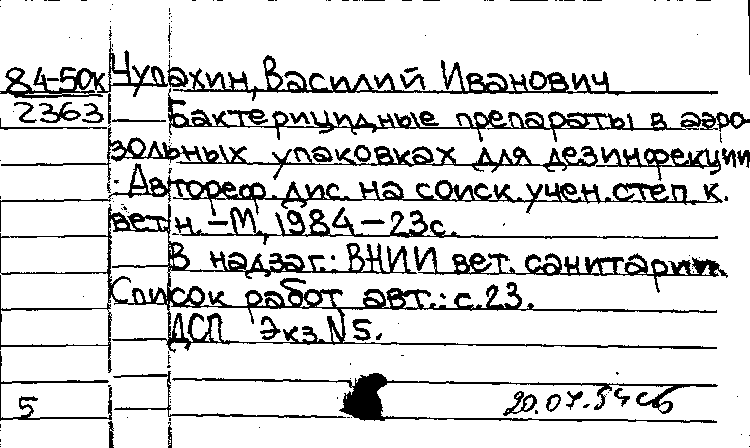 84-50к Чупахин, Василий Иванович
2363 Бактерицидные препараты в аэро
зольных упаковках для дезинфекции
. Автореф. дис. на соиск. учен. степ. к.
вет. н. - М., 1984 - 23с.
В надзаг.: ВНИИ вет. санитарии.
Список работ авт.: с. 23.
ДСП Экз. N5.
5 20.07.84